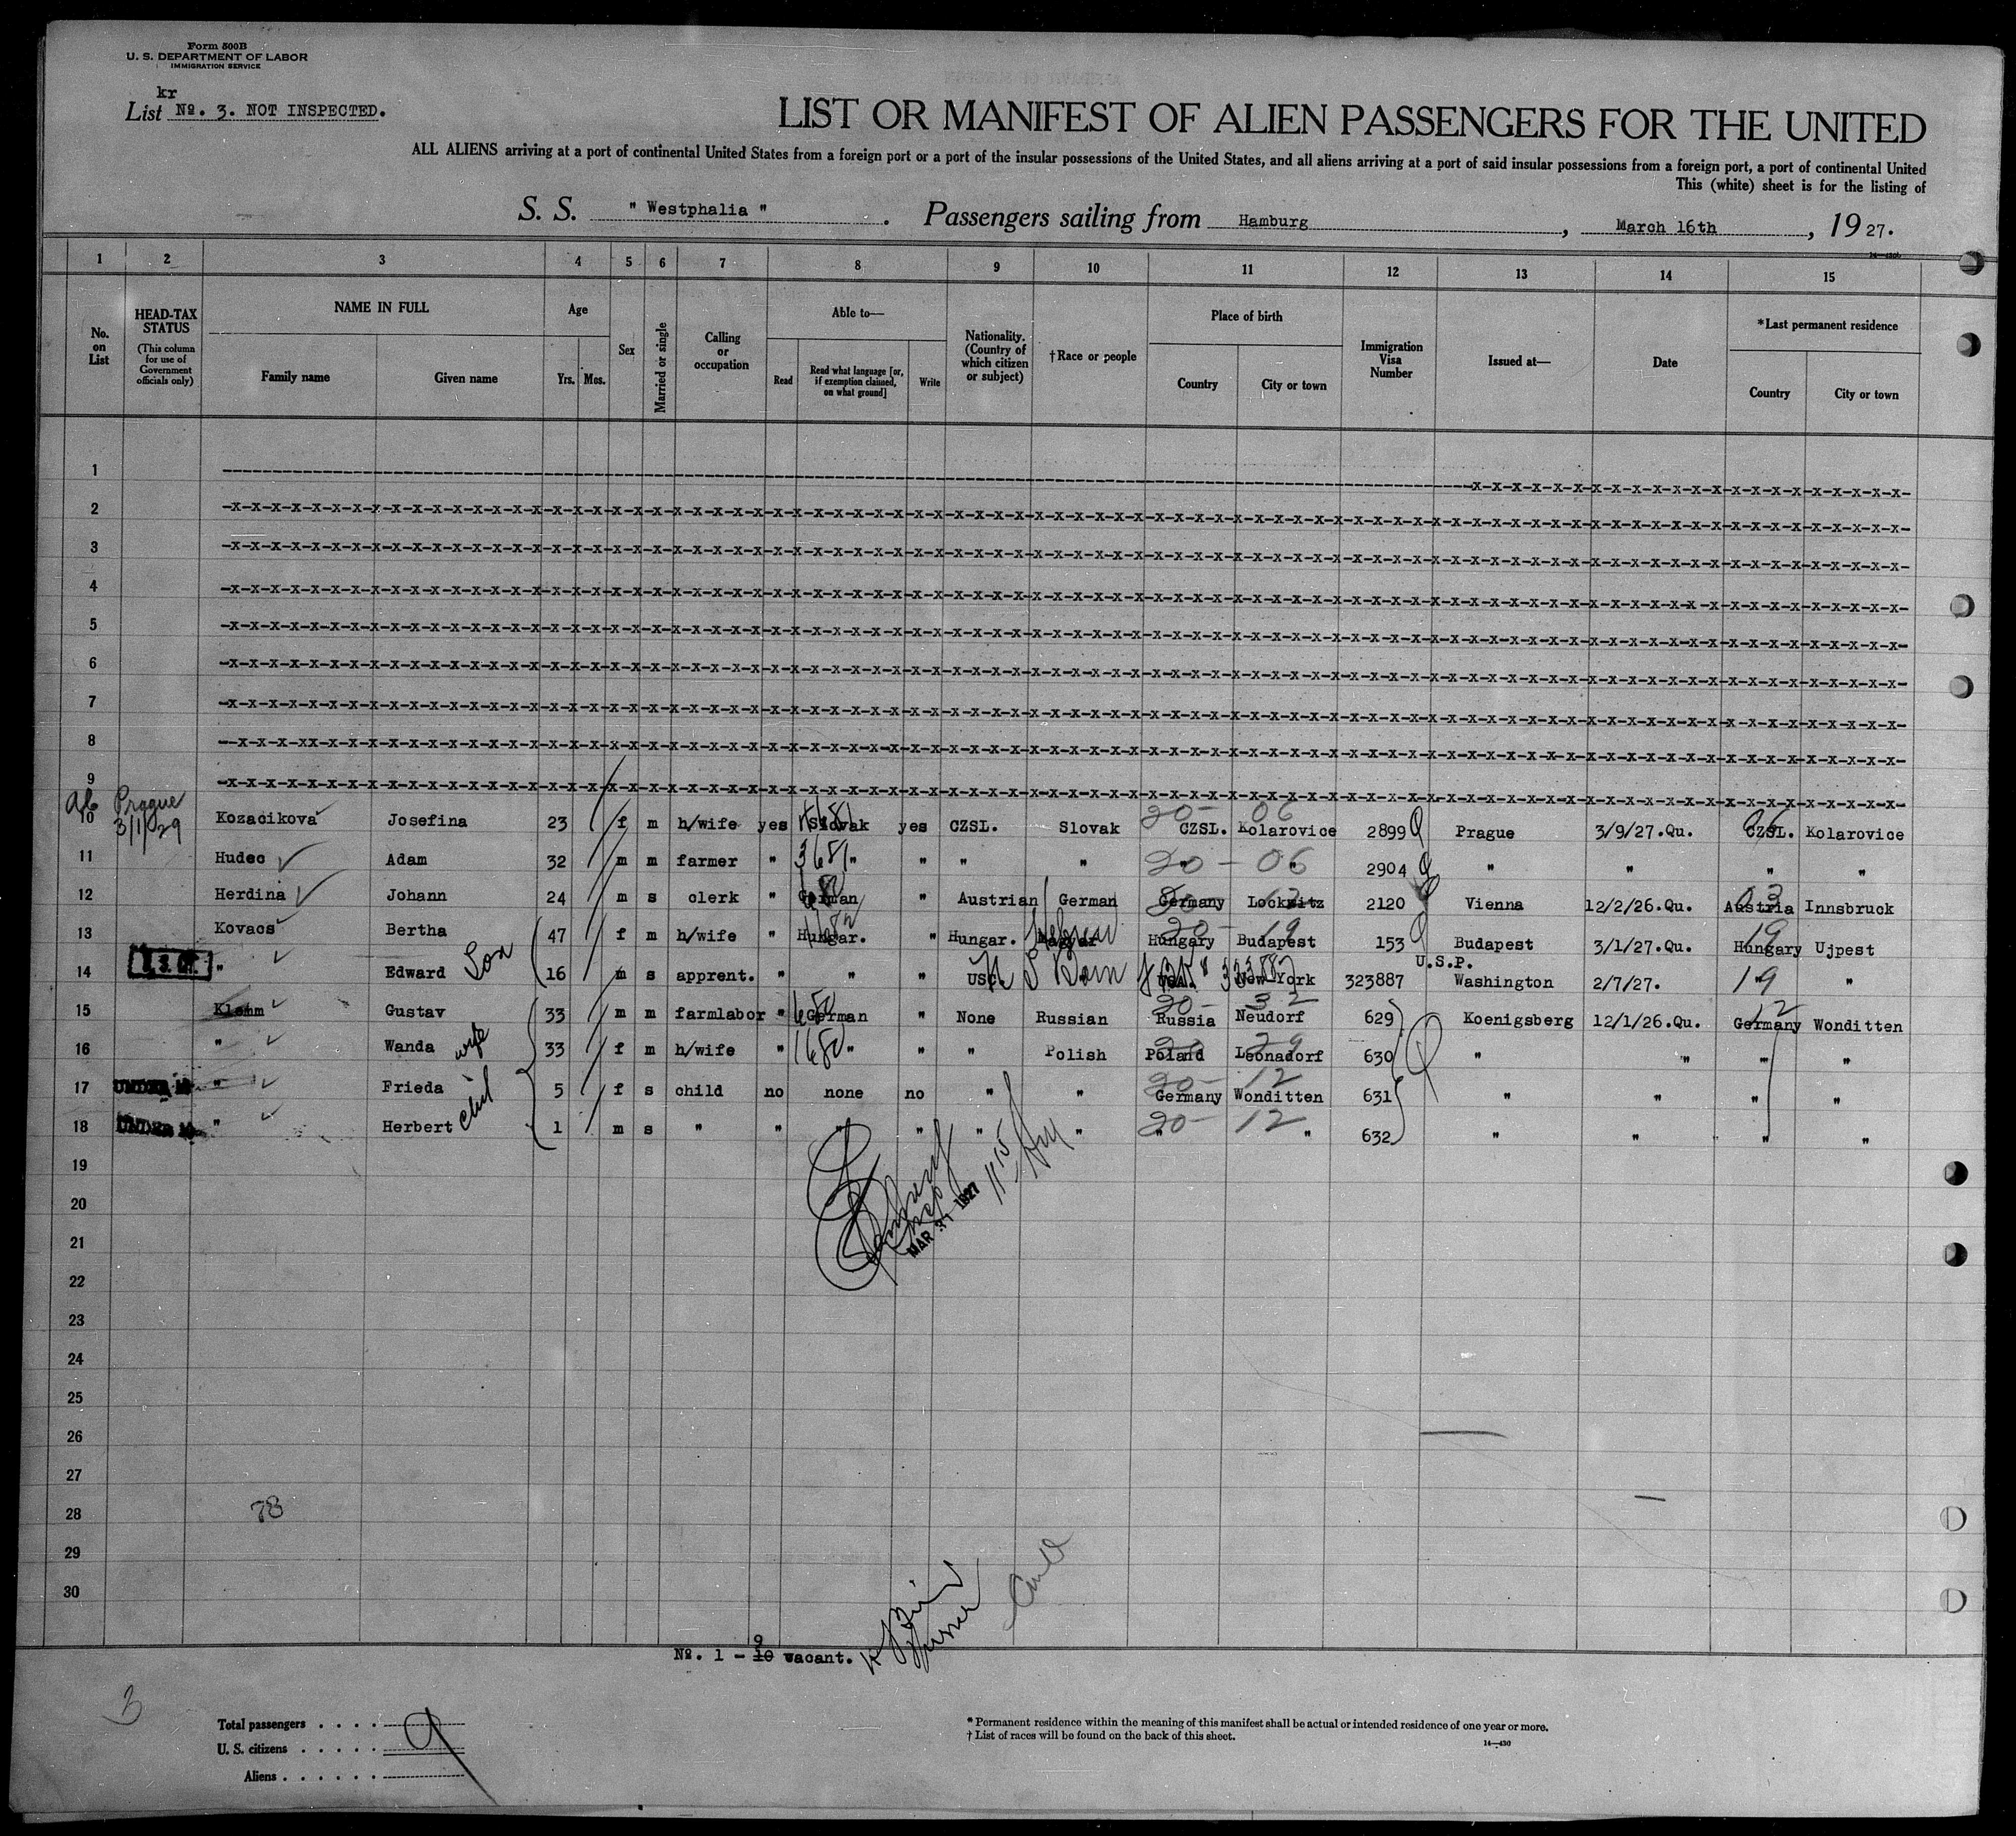 Form 500B
U. S. DEPARTMENT OF LABOR
IMMIGRATION SERVICE
kr
List No. 3. NOT INSPECTED.
LIST OR MANIFEST OF ALIEN PASSENGERS FOR THE UNITED
ALL ALIENS arriving at a port of continental United States from a foreign port or a port of the insular possessions of the United States, and all aliens arriving at a port of said insular possessions from a foreign port, a port of continental United
This (white) sheet is for the listing of
S. S. " Westphalia ". Passengers sailing from Hamburg, March 16th, 1927.
1 2 3 4 5 6 7 8 9 10 11 12 13 14 15
No. on List
HEAD-TAX STATUS (This column for use of Government officials only)
NAME IN FULL Family name Given name
Age Yrs. Mos.
Sex
Married or single
Calling or occupation
Able to— Read Read what language [or, if exemption claimed, on what ground] Write
Nationality. (Country of which citizen or subject)
†Race or people
Place of birth Country City or town
Immigration Visa Number
Issued at—
Date
*Last permanent residence Country City or town
1
2 -x-x-x-x-x-x-x-x-x-x-
3 -x-x-x-x-x-x-x-x-x-x-
4 -x-x-x-x-x-x-x-x-x-x-
5 -x-x-x-x-x-x-x-x-x-x-
6 -x-x-x-x-x-x-x-x-x-x-
7 -x-x-x-x-x-x-x-x-x-x-
8 --x-x-x-xx-x-x-x-x-x-
9 -x-x-x-x-x-x-x-x-x-x-
Prague 3/1/29
10 Kozacikova Josefina 23 f m h/wife yes Slovak yes CZSL. Slovak CZSL. Kolarovice 2899 Prague 3/9/27.Qu. CZSL. Kolarovice
20- 06 06
11 Hudec Adam 32 m m farmer " " " " " " " 2904 " " " "
20 - 06
12 Herdina Johann 24 m s clerk " German " Austrian German Germany Lockwitz 2120 Vienna 12/2/26.Qu. Austria Innsbruck
03
13 Kovacs Bertha 47 f m h/wife " Hungar. " Hungar. Magyar Hebrew Hungary Budapest 153 Budapest 3/1/27.Qu. Hungary Ujpest
20- 19 19
14 " Edward Son 16 m s apprent. " " " USC. U S Born USA. New-York 323887 U.S.P. Washington 2/7/27. " "
19
15 Klemm Gustav 33 m m farmlabor " German " None Russian Russia Neudorf 629 Koenigsberg 12/1/26.Qu. Germany Wonditten
20- 32 12
16 " Wanda wife 33 f m h/wife " " " " Polish Poland Leonadorf 630 " " " "
17 UNDER 16 " Frieda 5 f s child no none no " " Germany Wonditten 631 " " " "
20- 12
18 UNDER 16 " Herbert 1 m s " " " " " " " " 632 " " " "
20- 12
19
MAR 31 1927
20
21
22
23
24
25
26
27
28 78
29
30
No. 1 - 10 9 vacant.
3
Total passengers . . . .
U. S. citizens . . . . .
Aliens . . . . . .
9
* Permanent residence within the meaning of this manifest shall be actual or intended residence of one year or more.
† List of races will be found on the back of this sheet.
14—430